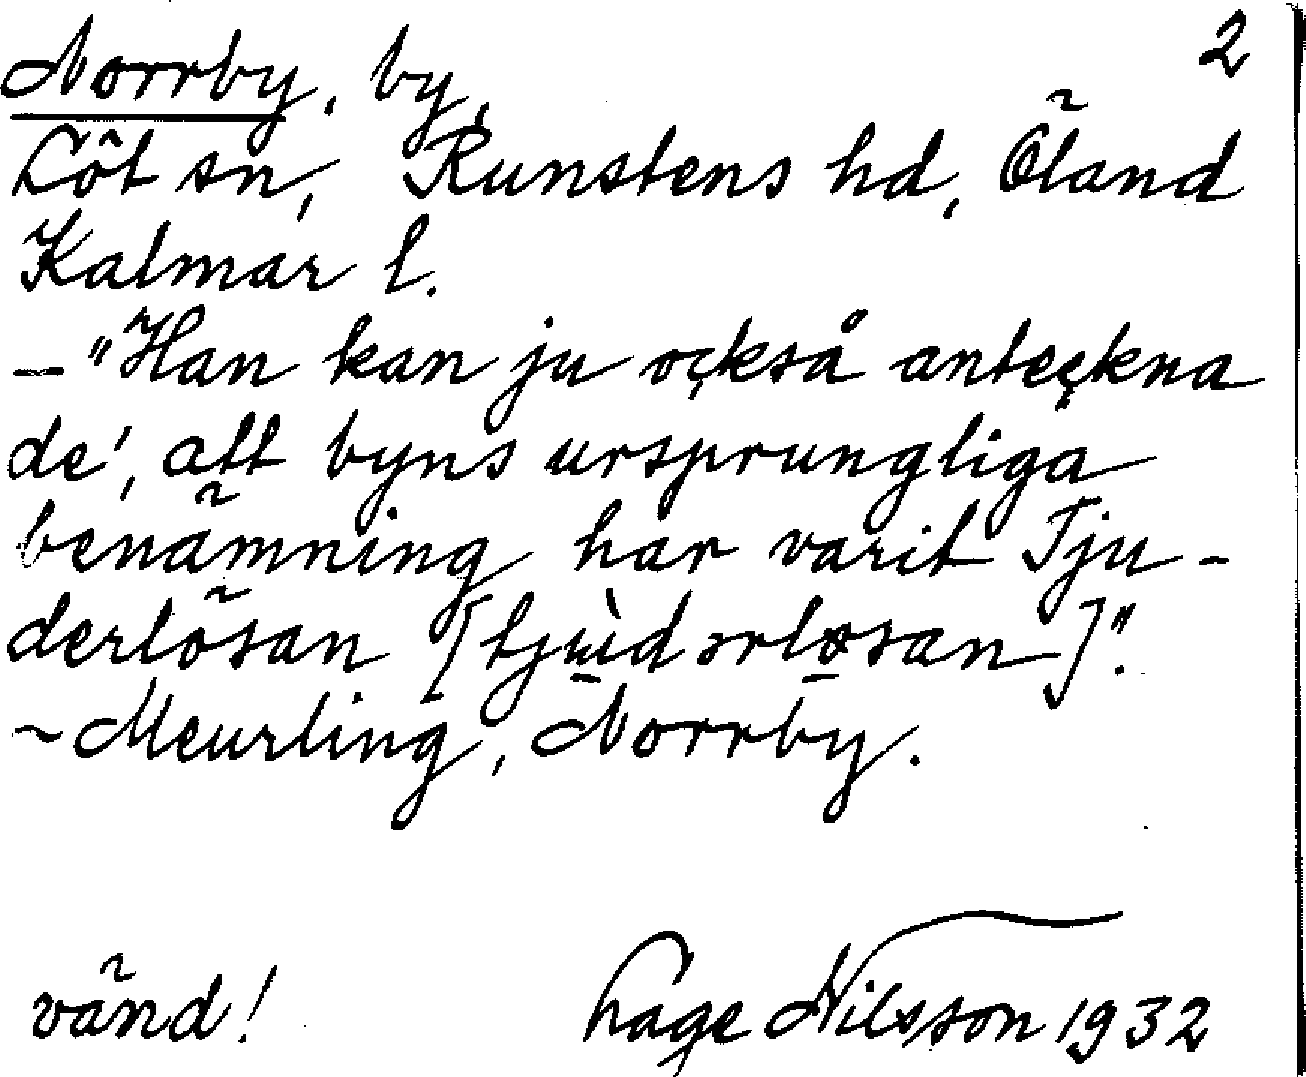 Norrby, by, 2
Löt sn, Runstens hd, Öland
Kalmar l.
– "Han kan ju också anteckna
de', att byns ursprungliga
benämning har varit Tju-
derlösan [tjùdərløsan]".
~ Meurling, Norrby.
vänd! Hage Nilsson 1932